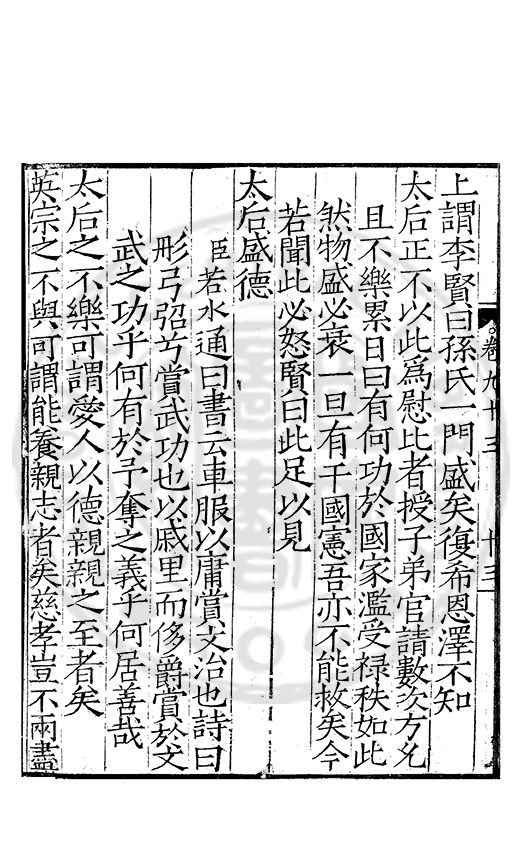 上謂李賢曰孫氏一門盛矣復希恩澤不知
太后正不以此為慰比者授子弟官請數次方允
且不樂累日曰有何功於國家濫受祿秩如此
然物盛必衰一旦有干國憲吾亦不能救矣今
若聞此必怒賢曰此足以見
太后盛德
臣若水通曰書云車服以庸賞文治也詩曰
彤弓弨兮賞武功也以戚里而侈爵賞於文
武之功乎何有於予奪之義乎何居善哉
太后之不樂可謂愛人以德親親之至者矣
英宗之不與可謂能養親志者矣慈孝豈不兩盡
卷九十三
十三